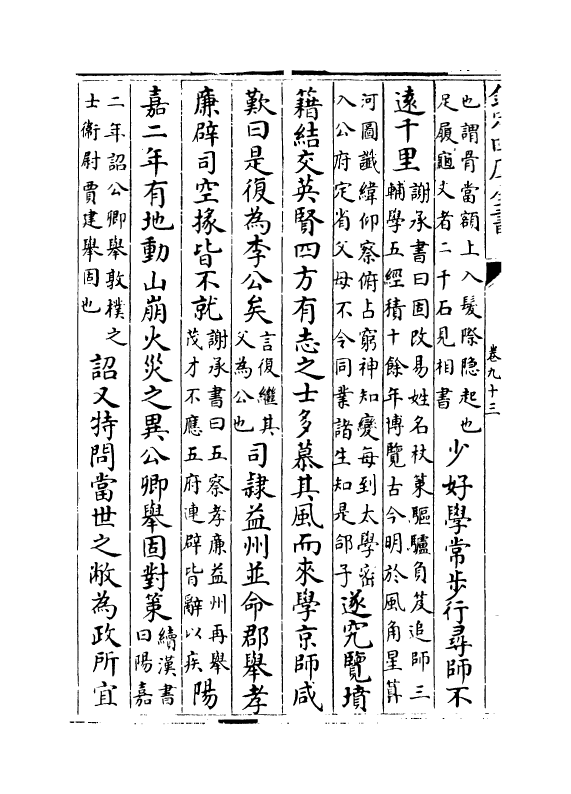 欽定四庫全書
卷九十三
也謂骨當額上入髮際隐起也
足履龜文者二千石見相書
少好學常步行尋師不
遠千里
謝承書曰固改易姓名杖策驅驢負笈追師三
輔學五經積十餘年博覽古今明於風角星筭
河圖讖緯仰察俯占窮神知變每到太學宻
入公府定省父母不令同業諸生知是郃子
遂究覽墳
籍結交英賢四方有志之士多慕其風而來學京師咸
歎曰是復為李公矣
言復繼其
父為公也
司隷益州並命郡舉孝
廉辟司空掾皆不就
謝承書曰五察孝廉益州再舉
茂才不應五府連辟皆辭以疾
陽
嘉二年有地動山崩火災之異公卿舉固對策
續漢書
曰陽嘉
二年詔公卿舉敦樸之
士衛尉賈建舉固也
詔又特問當世之敝為政所宜